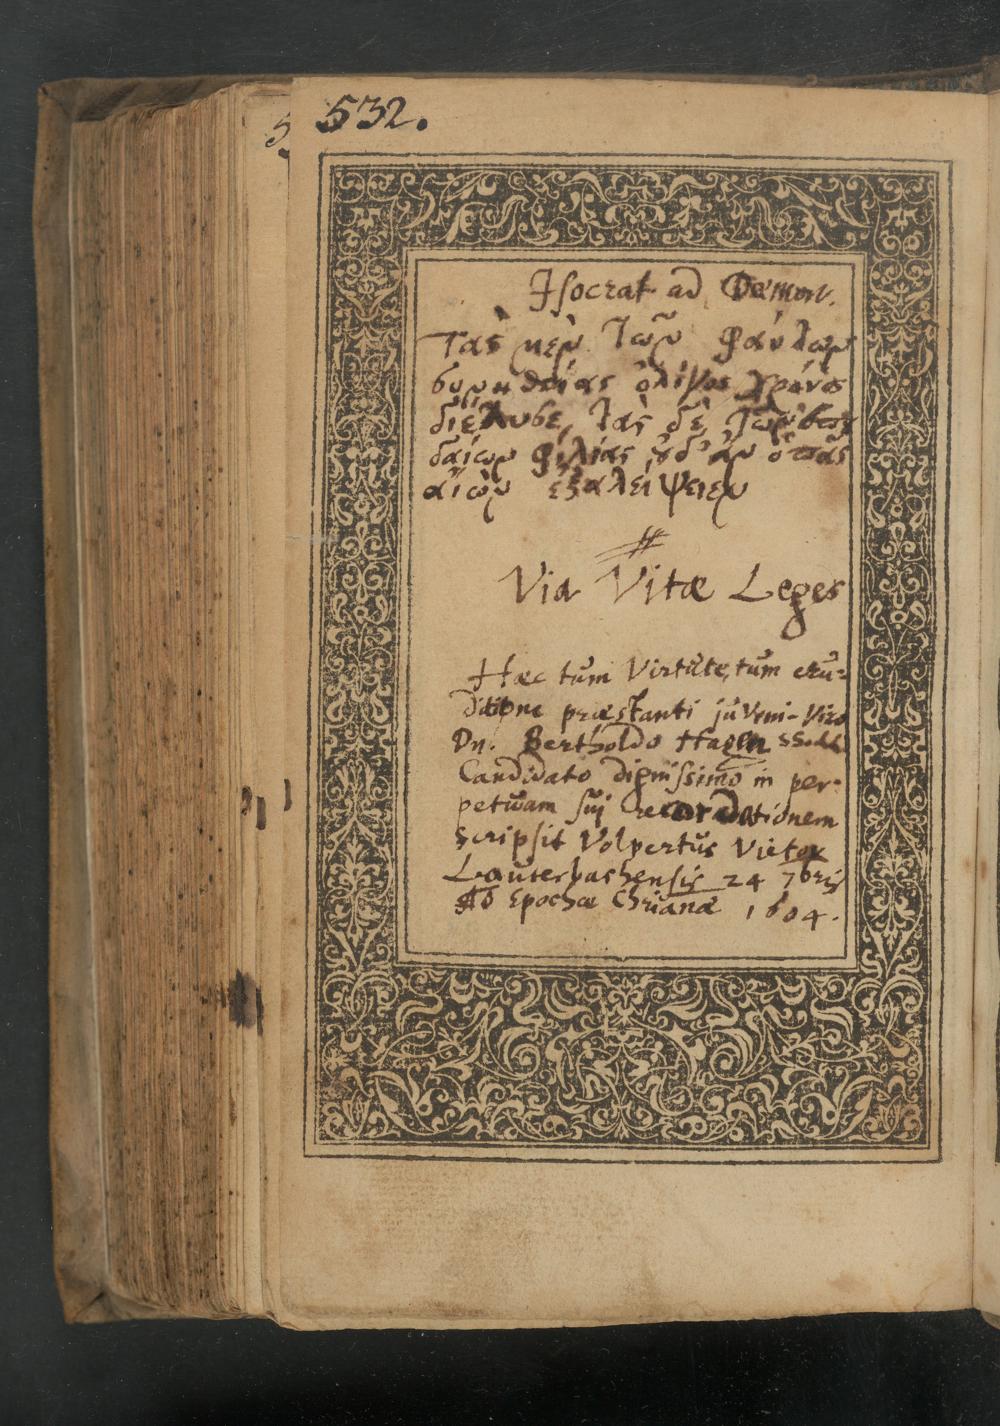 532.
Isocrat ad Dæmon.
Τὰς μὲν τῶν φαύλων
συνηθείας ὀλίγος χρόνος
διέλυσε, τὰς δὲ τῶν σπου
δαίων φιλίας οὐδ' ἂν ὁ πᾶς
αἰὼν ἐξαλείψειεν
Via Vitæ Leges
Hæc tum Virtute, tum eru-
ditione præstanti juveni-Viro
Dn. Bertholdo Hagen
Candidato dignissimo in per-
petuam sui recordationem
scripsit Volpertus Vietor
Lauterbachensis 24 7bris
Epochæ Chrianæ 1604.